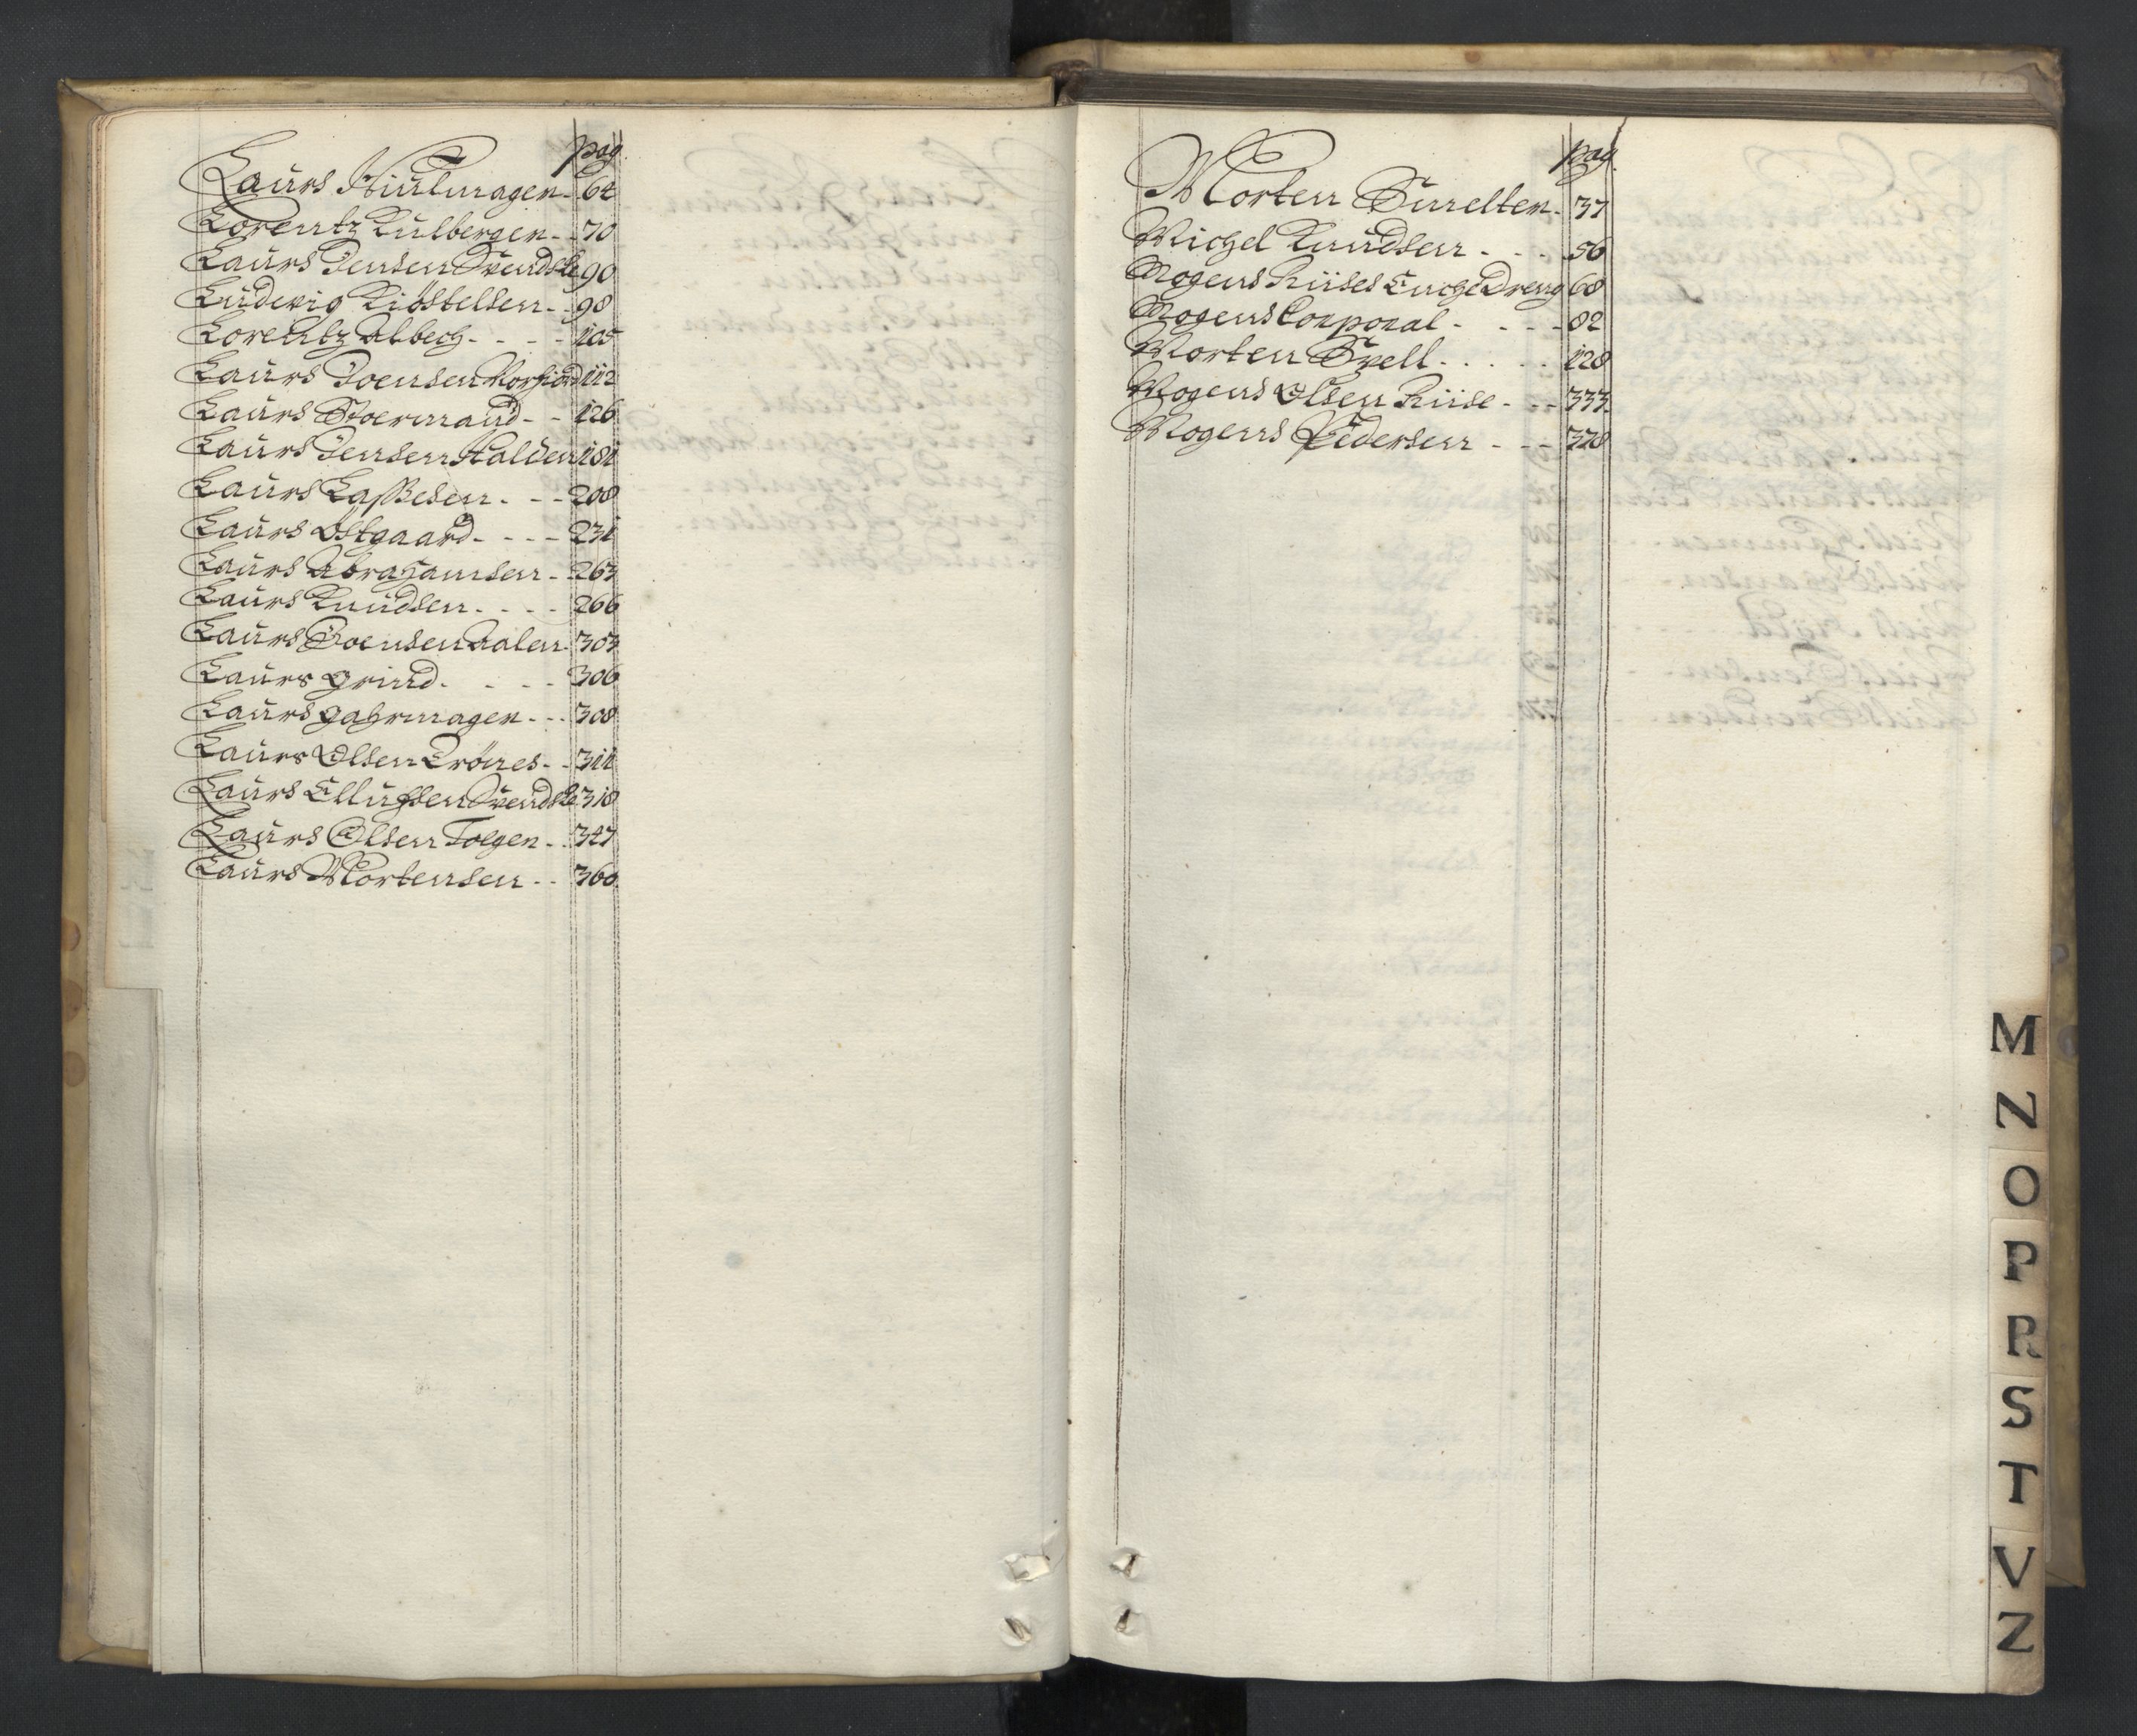 pag.
Laurs Hiulmager - 64
Lorentz Kulbergen - - 70
Laurs Jensen Svendske 90
Ludevig Kiöstelsen - - 98
Lorentz Abbech - - - - 105
Laurs Joensen Morsiord 112
Laurs Stoermand - - 126
Laurs Jensen Halden 181
Laurs Laszesen - - - 208
Laurs Østgaard - - - - 231
Laurs Abrahamsen - 263
Laurs Knudsen - - - - 266
Laurs Joensen Aalen 303
Laurs Grind - - - - 306
Laurs Gahrmager - - - 308
Laurs Olsen Trönes - - 311
Laurs Ellufsen Svendske 318
Laurs Olsen Tolgen - - 347
Laurs Mortensen - - 360
pag.
Morten Smelter - 37
Michel Knudsen - - - - 56
Mogens Riises Encke Dreng 68
Mogens Corporal - - - - 82
Morten Svell - - - - - 128
Mogens Olsen Riise - - - 333
Mogens Pedersen - - - 328
M
N
O
P
R
S
T
V
Z